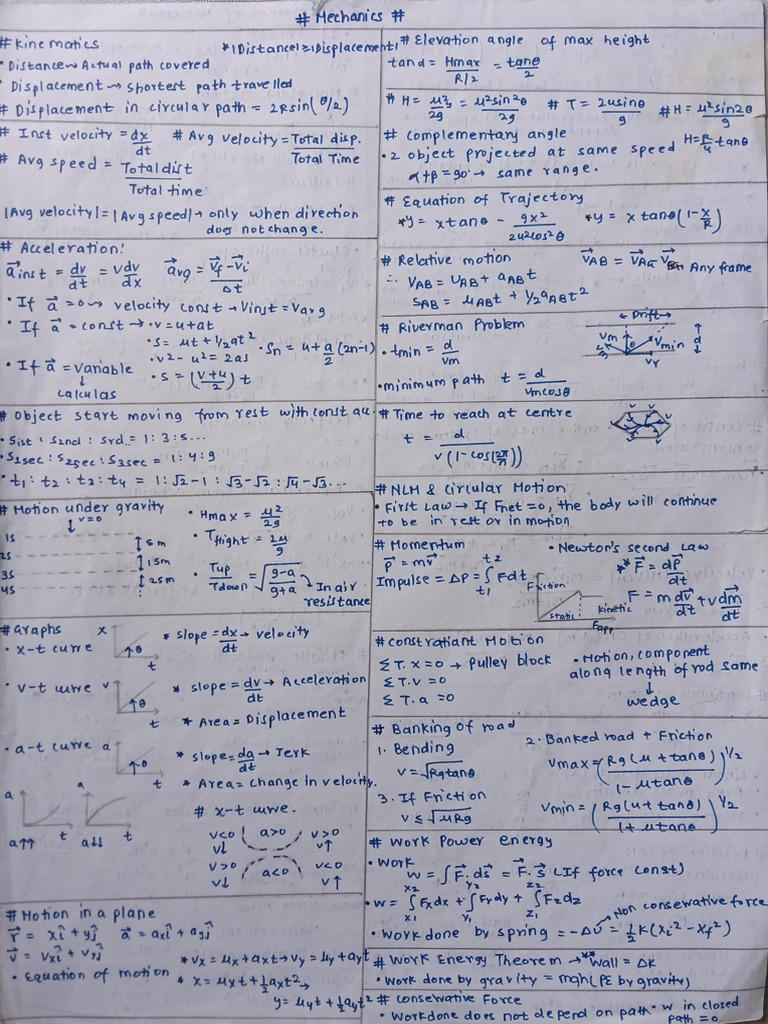 # Mechanics #
# Kinematics
*|Distance|≥|Displacement|
• Distance → Actual path covered
• Displacement → shortest path travelled
# Displacement in circular path = 2Rsin(θ/2)
# Inst velocity = dx/dt # Avg velocity = Total disp./Total Time
# Avg speed = Total dist/Total time
|Avg velocity| = |Avg speed| → only when direction
does not change.
# Acceleration:
a⃗inst = dv/dt = vdv/dx a⃗vg = (v⃗f - v⃗i)/Δt
• If a⃗ = 0 → velocity const → Vinst = Vavg
• If a⃗ = const → • v = u+at
• s = ut + 1/2at²
• v² - u² = 2as
• Sn = u + a/2(2n-1)
• s = (v+u/2)t
• If a⃗ = variable
↓
calculas
# Object start moving from rest with const au.
• S1st : S2nd : S3rd = 1:3:5...
• S1sec : S2sec : S3sec = 1:4:9
• t1 : t2 : t3 : t4 = 1 : √2-1 : √3-√2 : √4-√3...
# Motion under gravity
v=0
1s
2s
3s
4s
5m
15m
25m
• Hmax = u²/2g
• Tflight = 2u/g
• Tup/Tdown = √(g-a/g+a) → In air
resistance
# Graphs
• x-t curve x θ t * slope = dx/dt → velocity
• v-t curve v θ t * slope = dv/dt → Acceleration
* Area = Displacement
• a-t curve a θ t * slope = da/dt → Jerk
* Area = change in velocity.
a t a t
a↑↑ a↓↓
# x-t curve.
v<0 a>0 v>0
v↓ v↑
v>0 a<0 v<0
v↓ v↑
# Motion in a plane
r⃗ = xî + yĵ a⃗ = axî + ayĵ
v⃗ = vxî + vyĵ
• Equation of motion
* vx = ux + axt → vy = uy + ayt
* x = uxt + 1/2axt² →
y = uyt + 1/2ayt²
# Elevation angle of max height
tanα = Hmax/R/2 = tanθ/2
# H = u²y/2g = u²sin²θ/2g # T = 2usinθ/g # H = u²sin2θ/g
# Complementary angle
H = R/4 tanθ
• 2 object projected at same speed
α+β = 90° → same range.
# Equation of Trajectory
*y = xtanθ - gx²/2u²cos²θ *y = xtanθ(1-x/R)
# Relative motion
∴ VAB = UAB + aABt
SAB = uABt + 1/2aABt²
Any frame
# Riverman Problem
• tmin = d/vm
Drift→
vm θ vmin d
vr
• minimum path t = d/vmcosθ
# Time to reach at centre
t = d/v(1-cos(2π/n))
# NLM & Circular Motion
• First Law → If Fnet = 0, the body will continue
to be in rest or in motion
# Momentum
p⃗ = mv⃗
Impulse = Δp = ∫t1t2 Fdt
Friction
static kinetic
Fapp
• Newton's second Law
** F⃗ = dP⃗/dt
F = mdv⃗/dt + vdm⃗/dt
# Constratiant Motion
ΣT.x = 0 → Pulley block
ΣT.v = 0
ΣT.a = 0
• Motion, component
along length of rod same
↓
wedge
# Banking of road
1. Bending
v = √Rgtanθ
2. Banked road + Friction
vmax = (Rg(u+tanθ)/1-utanθ)1/2
3. If Friction
v ≤ √uRg
vmin = (Rg(u+tanθ)/1+utanθ)1/2
# Work Power energy
• Work
w = ∫F⃗.ds⃗ = F⃗.S⃗ (If force const)
• w = ∫x1x2 Fxdx + ∫y1y2 Fydy + ∫z1z2 Fzdz
Non conservative force
• Work done by spring = -ΔU = 1/2K(xi² - xf²)
# Work Energy Theorem → **Wall = ΔK
• Work done by gravity = mgh (PE by gravity)
# Conservative Force
• Workdone does not depend on path • W in closed
path = 0